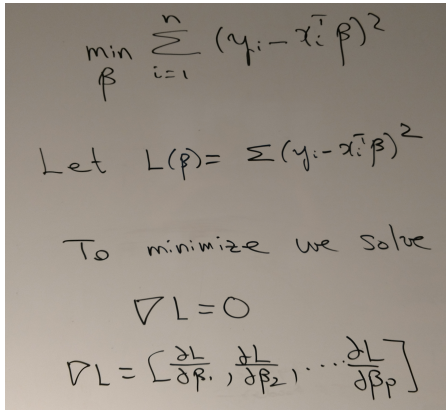 min_β Σ_{i=1}^{n} (y_i - x_i^T β)^2
Let L(β) = Σ(y_i - x_i^T β)^2
To minimize we solve
∇L = 0
∇L = [∂L/∂β_1, ∂L/∂β_2, ... ∂L/∂β_p]